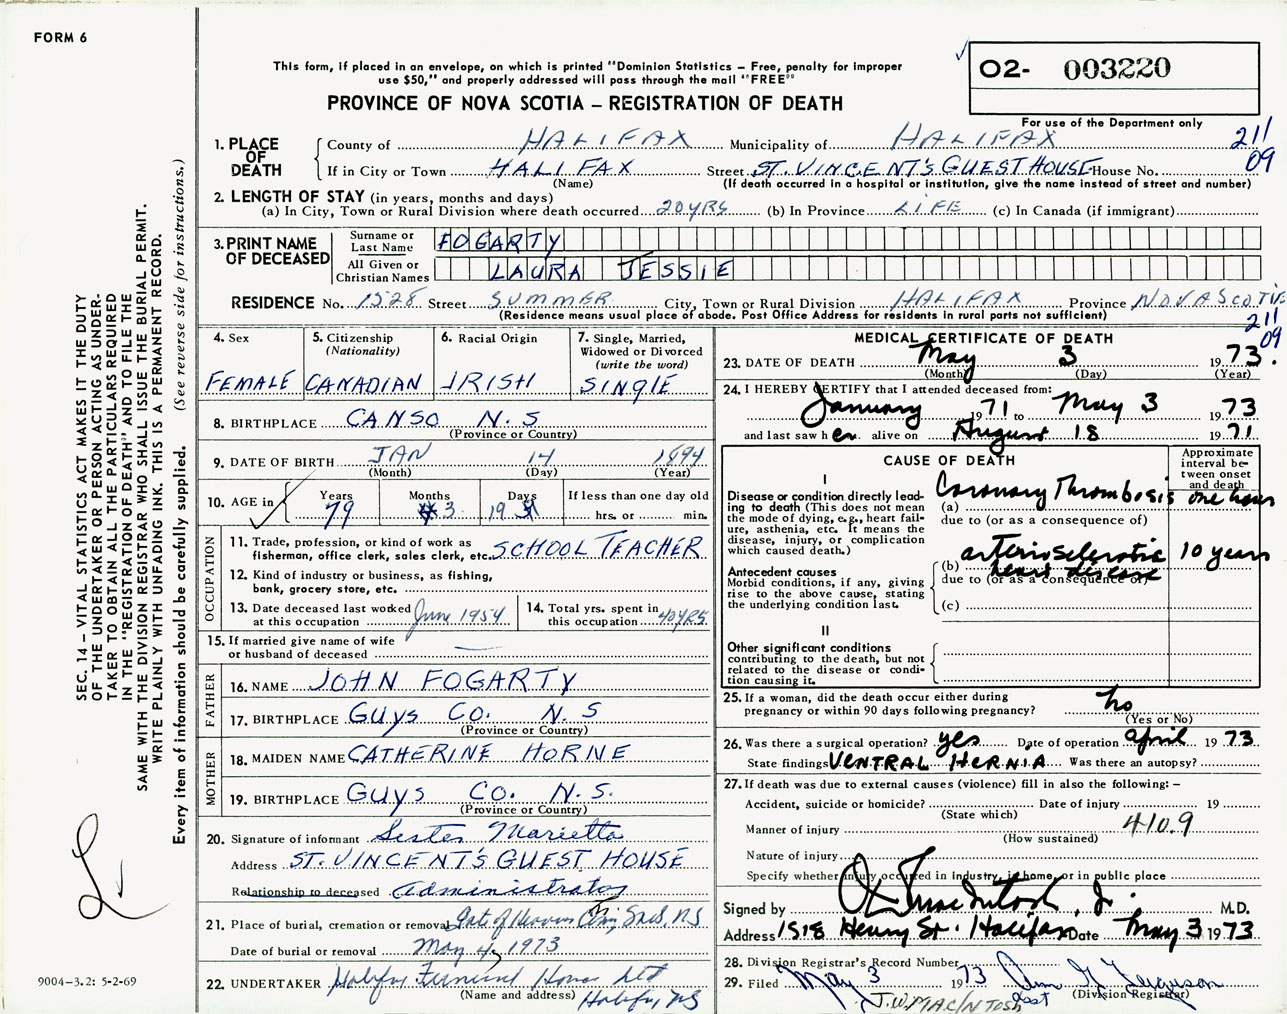 FORM 6
This form, if placed in an envelope, on which is printed "Dominion Statistics – Free, penalty for improper
use $50," and properly addressed will pass through the mail "FREE"
PROVINCE OF NOVA SCOTIA – REGISTRATION OF DEATH
02- 003220
For use of the Department only
211
09
1. PLACE OF DEATH
County of HALIFAX Municipality of HALIFAX
If in City or Town HALIFAX Street ST. VINCENT'S GUEST HOUSE House No.
(Name) (If death occurred in a hospital or institution, give the name instead of street and number)
2. LENGTH OF STAY (in years, months and days)
(a) In City, Town or Rural Division where death occurred 20 YRS (b) In Province LIFE (c) In Canada (if immigrant)
3. PRINT NAME OF DECEASED
Surname or Last Name FOGARTY
All Given or Christian Names LAURA JESSIE
RESIDENCE No. 1528 Street SUMMER City, Town or Rural Division HALIFAX Province NOVA SCOTIA
(Residence means usual place of abode. Post Office Address for residents in rural parts not sufficient)
211
09
4. Sex
FEMALE
5. Citizenship
(Nationality)
CANADIAN
6. Racial Origin
IRISH
7. Single, Married,
Widowed or Divorced
(write the word)
SINGLE
8. BIRTHPLACE CANSO N.S
(Province or Country)
9. DATE OF BIRTH JAN 14 1894
(Month) (Day) (Year)
10. AGE in
Years Months Days If less than one day old
79 3 19 hrs. or min.
OCCUPATION
11. Trade, profession, or kind of work as
fisherman, office clerk, sales clerk, etc. SCHOOL TEACHER
12. Kind of industry or business, as fishing,
bank, grocery store, etc.
13. Date deceased last worked
at this occupation June 1954
14. Total yrs. spent in
this occupation 40 YRS.
15. If married give name of wife
or husband of deceased —
FATHER
16. NAME JOHN FOGARTY
17. BIRTHPLACE GUYS CO. N.S
(Province or Country)
MOTHER
18. MAIDEN NAME CATHERINE HORNE
19. BIRTHPLACE GUYS CO. N.S.
(Province or Country)
20. Signature of informant Sister Marietta
Address ST. VINCENT'S GUEST HOUSE
Relationship to deceased Administrator
21. Place of burial, cremation or removal Gate of Heaven N.S
Date of burial or removal May 4, 1973
22. UNDERTAKER Halifax Funeral Home Ltd
(Name and address) Halifax NS
MEDICAL CERTIFICATE OF DEATH
23. DATE OF DEATH May 3 1973.
(Month) (Day) (Year)
24. I HEREBY CERTIFY that I attended deceased from:
January 1971 to May 3 1973
and last saw her alive on August 18 1971
CAUSE OF DEATH
Approximate
interval be-
tween onset
and death
I
Disease or condition directly lead-
ing to death (This does not mean
the mode of dying, e.g., heart fail-
ure, asthenia, etc. It means the
disease, injury, or complication
which caused death.)
(a) Coronary Thrombosis one hour
due to (or as a consequence of)
Antecedent causes
Morbid conditions, if any, giving
rise to the above cause, stating
the underlying condition last.
(b) arteriosclerotic heart disease 10 years
due to (or as a consequence of)
(c)
II
Other significant conditions
contributing to the death, but not
related to the disease or condi-
tion causing it.
25. If a woman, did the death occur either during
pregnancy or within 90 days following pregnancy? no
(Yes or No)
26. Was there a surgical operation? yes Date of operation april 1973
State findings VENTRAL HERNIA Was there an autopsy?
27. If death was due to external causes (violence) fill in also the following: –
Accident, suicide or homicide? Date of injury 19
(State which)
Manner of injury 410.9
(How sustained)
Nature of injury
Specify whether injury occurred in Industry, in home, or in public place
Signed by MacIntosh, Jr. M.D.
Address 1518 Henry St. Halifax Date May 3 1973
28. Division Registrar's Record Number
29. Filed May 3 1973 Ann Ferguson
(Division Registrar)
J.W. MACINTOSH
asst
SEC. 14 – VITAL STATISTICS ACT MAKES IT THE DUTY
OF THE UNDERTAKER OR PERSON ACTING AS UNDER-
TAKER TO OBTAIN ALL THE PARTICULARS REQUIRED
IN THE "REGISTRATION OF DEATH" AND TO FILE THE
SAME WITH THE DIVISION REGISTRAR WHO SHALL ISSUE THE BURIAL PERMIT.
WRITE PLAINLY WITH UNFADING INK. THIS IS A PERMANENT RECORD.
Every item of information should be carefully supplied. (See reverse side for instructions.)
9004–3.2: 5-2-69